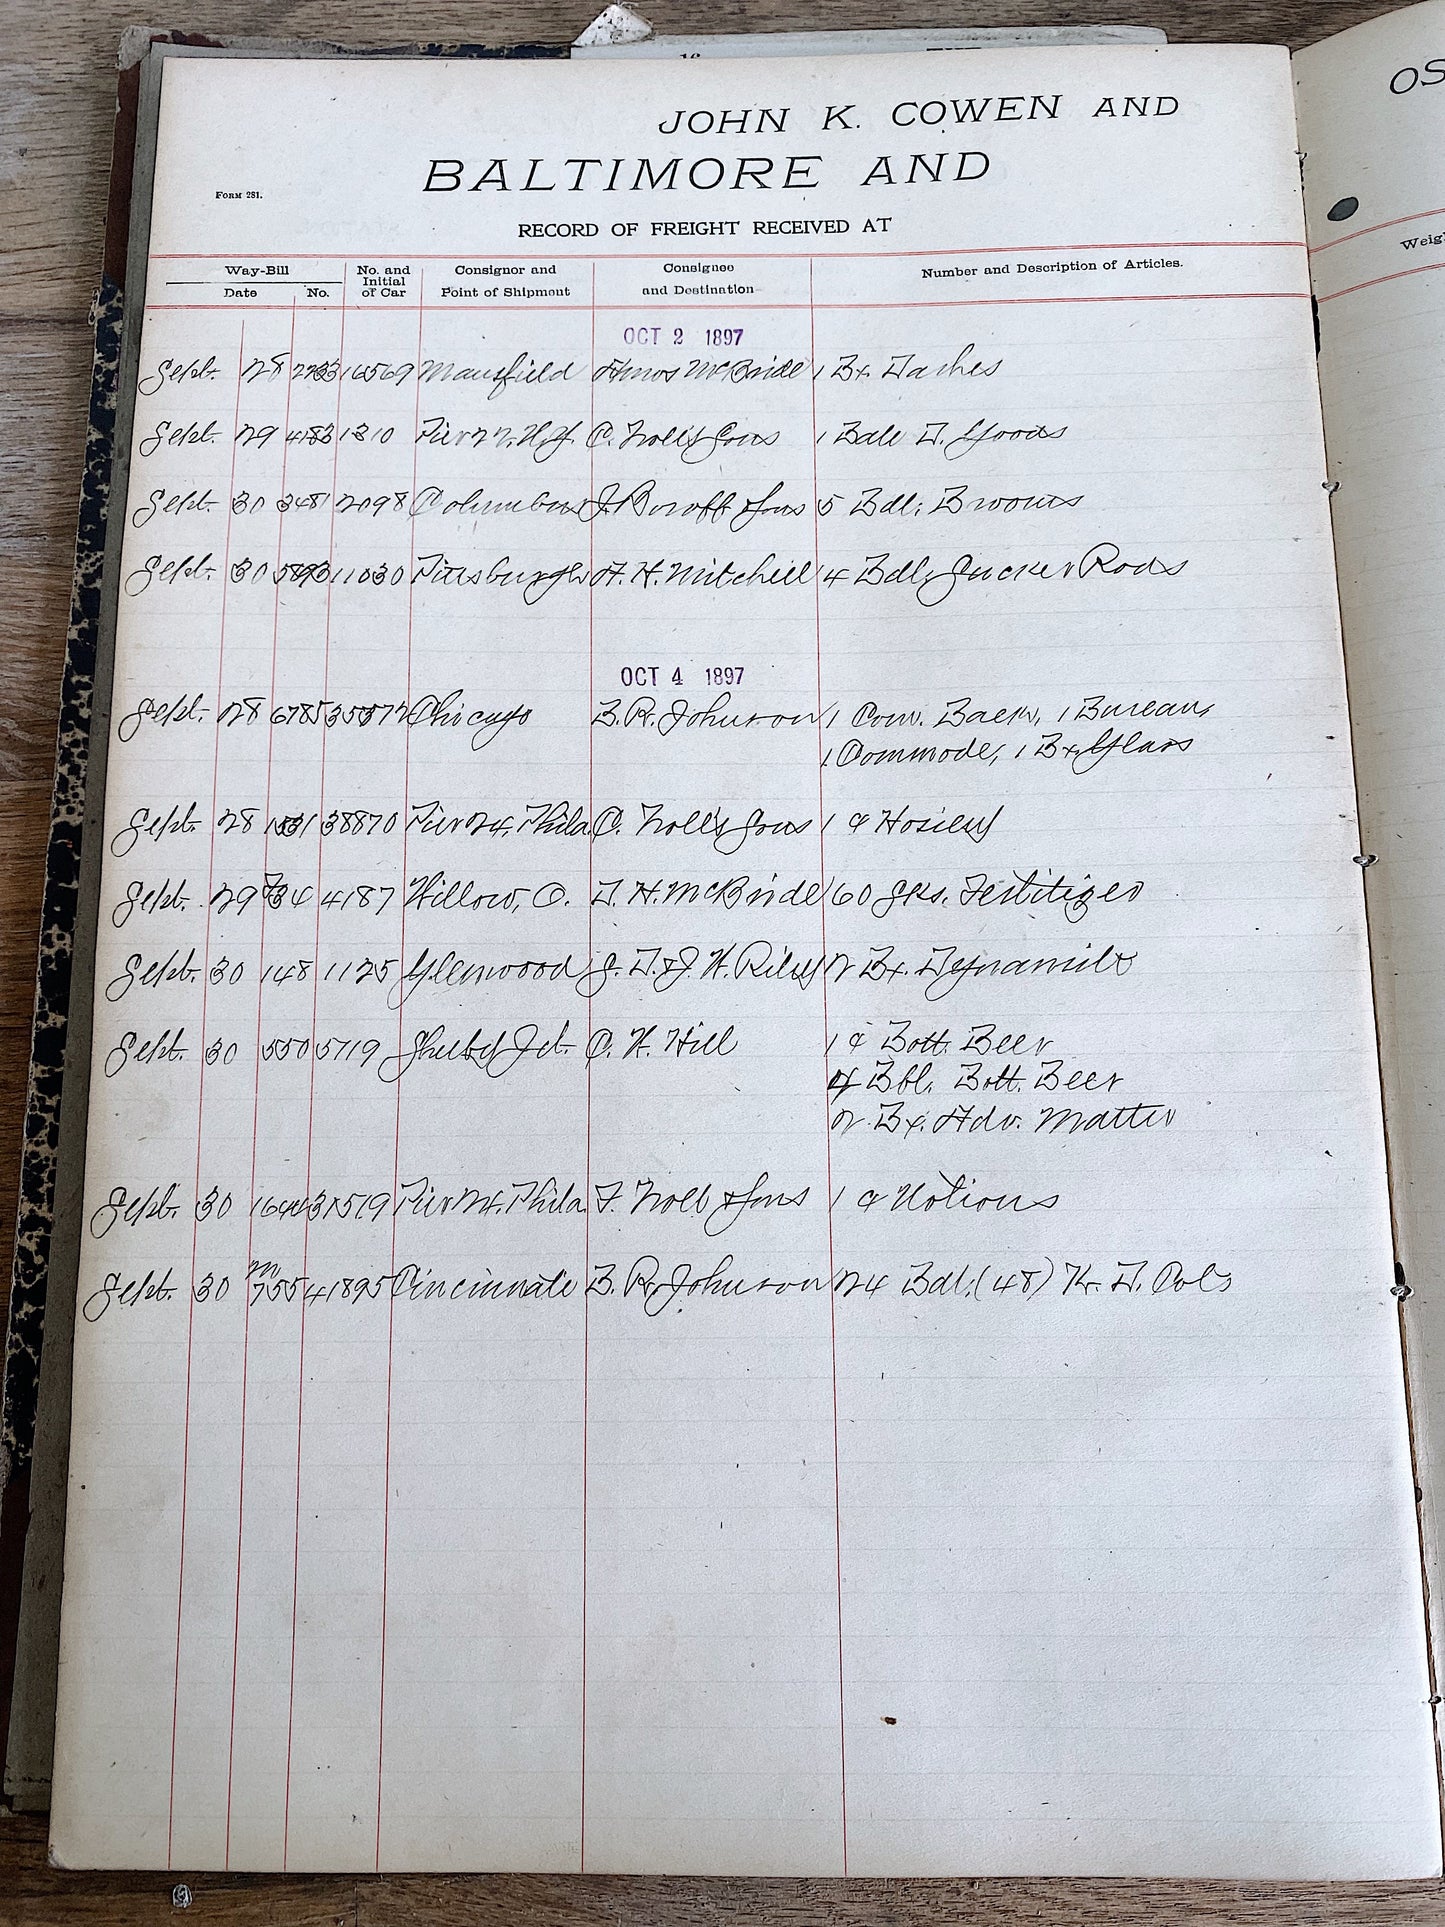 JOHN K. COWEN AND
OS
BALTIMORE AND
FORM 281.
RECORD OF FREIGHT RECEIVED AT
Weig
Way-Bill No. and Initial of Car Consignor and Point of Shipment Consignee and Destination Number and Description of Articles.
Date No.
OCT 2 1897
Sept. 28 2233 16569 Mansfield Amos McBride 1 Bx Saches
Sept. 29 4183 1310 Pier 22. N.Y. C. Noll & Sons 1 Bale D. Goods
Sept. 30 3481 2098 Columbus J. Boroff & Sons 5 Bdl. Brooms
Sept. 30 5893 11030 Pittsburgh A. H. Mitchell 4 Bdl. Sucker Rods
OCT 4 1897
Sept. 28 6785 Chicago B. R. Johnson 1 Com. Back, 1 Bureau,
1 Commode, 1 Bx Glass
Sept. 28 1531 38870 Pier 24. Phila. C. Noll & Sons 1 c Hosiery
Sept. 29 734 4187 Willow, O. D. H. McBride 60 Sks. Fertilizer
Sept. 30 148 1125 Glenwood S. D. & J. W. Riley 2 Bx. Dynamite
Sept. 30 550 5719 Shelby Jct. C. W. Hill 1 c Bott. Beer
4 Bbl. Bott. Beer
2 Bx. Adv. Matter
Sept. 30 1644 31519 Pier 24. Phila. F. Noll & Sons 1 c Notions
Sept. 30 755 41895 Cincinnati B. R. Johnson 24 Bdl. (48) K. D. Cots